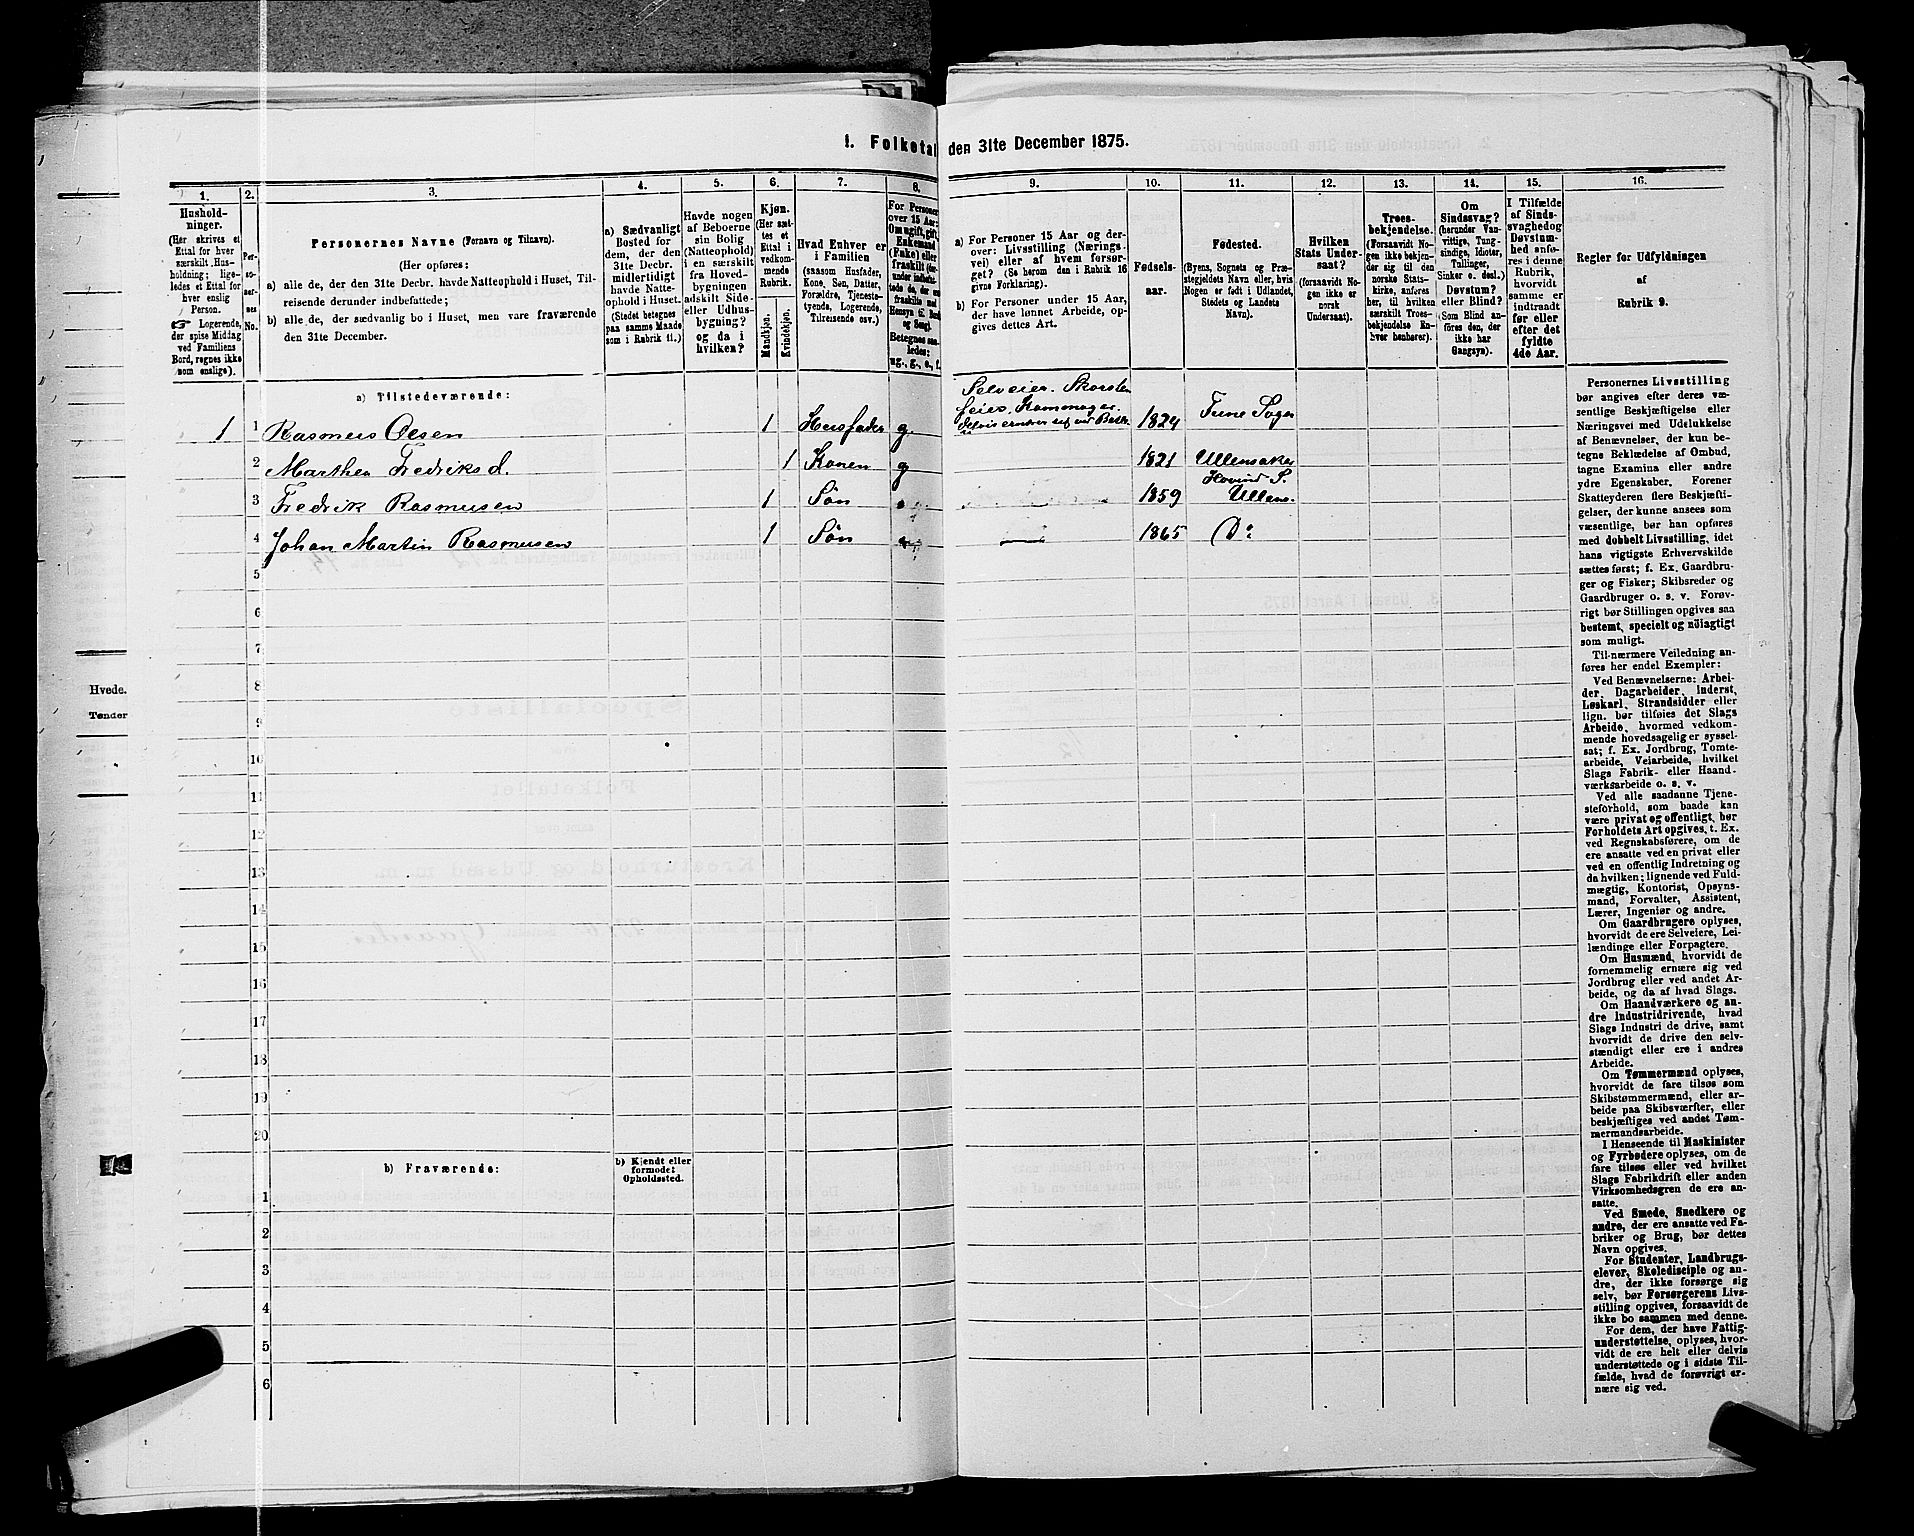 1. Folketal den 31te December 1875.
1.
2.
3.
4.
5.
6.
7.
8.
9.
10.
11.
12.
13.
14.
15.
16.
Hushold-
ninger.
(Her skrives et
Ettal for hver
særskilt Hus-
holdning; lige-
ledes et Ettal for
hver enslig
Person.
☞ Logerende,
der spise Middag
ved Familiens
Bord, regnes ikke
som enslige).
Per-
so-
ner-
nes
No.
Personernes Navne (Fornavn og Tilnavn).
(Her opføres:
a) alle de, der den 31te Decbr. havde Natteophold i Huset, Til-
reisende derunder indbefattede;
b) alle de, der sædvanlig bo i Huset, men vare fraværende
den 31te December.
a) Sædvanligt
Bosted for
dem, der den
31te Decbr.
midlertidigt
havde Natte-
ophold i Huset.
(Stedet betegnes
paa samme Maade
som i Rubrik 11.)
Havde nogen
af Beboerne
sin Bolig
(Natteophold)
i en særskilt
fra Hoved-
bygningen
adskilt Side-
eller Udhus-
bygning?
og da i
hvilken?
Kjøn.
(Her sæt-
tes et
Ettal i
vedkom-
mende
Rubrik.
Mandkjøn.
Kvindekjøn.
Hvad Enhver er
i Familien
(saasom Husfader,
Kone, Søn, Datter,
Forældre, Tjeneste-
tyende, Logerende,
Tilreisende osv.)
For Personer
over 15 Aar:
Om ugift, gift,
Enkemand
(Enke) eller
fraskilt
Betegnes saa-
ledes:
ug., g., e., f.
a) For Personer 15 Aar og der-
over: Livsstilling (Nærings-
vei) eller af hvem forsør-
get? (Se herom den i Rubrik 16
givne Forklaring).
b) For Personer under 15 Aar,
der have lønnet Arbeide, op-
gives dettes Art.
Fødsels-
aar.
Fødested.
(Byens, Sognets og Præ-
stegjeldets Navn eller, hvis
Nogen er født i Udlandet,
Stedets og Landets
Navn).
Hvilken
Stats Under-
saat?
(forsaavidt No-
gen ikke er
norsk
Undersaat).
Troes-
bekjendelse.
(Forsaavidt No-
gen ikke bekjen-
der sig til den
norske Stats-
kirke, anføres
her, til hvilken
særskilt Troes-
bekjendelse En-
hver henhører).
Om
Sindssvag?
(herunder Van-
vittige, Tung-
sindige, Idioter,
Tullinger,
Sinker o. desl.)
Døvstum?
eller Blind?
(Som Blind an-
føres den, der
ikke har
Gangsyn).
I Tilfælde
af Sinds-
svaghed og
Døvstum-
hed anfø-
res i denne
Rubrik,
hvorvidt
samme er
indtraadt
før eller
efter det
fyldte
4de Aar.
Regler for Udfyldningen
af
Rubrik 9.
a) Tilstedeværende:
Selveier. Skorsten
feier. Kammager.
1 1 Rasmus Olsen 1 Husfader g. 1824 Tune Sogn
2 Marthea Fredriksd. 1 Konen g 1821 Ullensaker
Hovind S.
3 Fredrik Rasmusen 1 Søn 1859 Ullens.
4 Johan Martin Rasmusen 1 Søn 1865 Do
5
6
7
8
9
10
11
12
13
14
15
16
17
18
19
20
b) Fraværende:
b) Kjendt eller
formodet
Opholdssted.
1
2
3
4
5
6
Personernes Livsstilling
bør angives efter deres væ-
sentlige Beskjæftigelse eller
Næringsvei med Udelukkelse
af Benævnelser, der kun be-
tegne Beklædelse af Ombud,
tagne Examina eller andre
ydre Egenskaber. Forener
Skatteyderen flere Beskjæfti-
gelser, der kunne ansees som
væsentlige, bør han opføres
med dobbelt Livsstilling, idet
hans vigtigste Erhvervskilde
sættes først; f. Ex. Gaardbru-
ger og Fisker; Skibsreder og
Gaardbruger o. s. v. Forøv-
rigt bør Stillingen opgives saa
bestemt, specielt og nøiagtigt
som muligt.
Til nærmere Veiledning an-
føres her endel Exempler:
Ved Benævnelserne: Arbei-
der, Dagarbeider, Inderst,
Løskarl, Strandsidder eller
lign. bør tilføies det Slags
Arbeide, hvormed vedkom-
mende hovedsagelig er syssel-
sat; f. Ex. Jordbrug, Tomte-
arbeide, Veiarbeide, hvilket
Slags Fabrik- eller Haand-
værksarbeide o. s. v.
Ved alle saadanne Tjene-
steforhold, som baade kan
være privat og offentligt, bør
Forholdets Art opgives, t. Ex.
ved Regnskabsførere, om de
ere ansatte ved en privat eller
ved en offentlig Indretning og
da hvilken; lignende ved Fuld-
mægtig, Kontorist, Opsyns-
mand, Forvalter, Assistent,
Lærer, Ingeniør og andre.
Om Gaardbrugere oplyses,
hvorvidt de ere Selveiere, Lei-
lændinge eller Forpagtere.
Om Husmænd, hvorvidt de
fornemmelig ernære sig ved
Jordbrug eller ved andet Ar-
beide, og da af hvad Slags.
Om Haandværkere og an-
dre Industridrivende, hvad
Slags Industri de drive, samt
hvorvidt de drive den selv-
stændigt eller ere i andres
Arbeide.
Om Tømmermænd oplyses,
hvorvidt de fare tilsøs som
Skibstømmermænd, eller ar-
beide paa Skibsværfter, eller
beskjæftiges ved andet Tøm-
mermandsarbeide.
I Henseende til Maskinister
og Fyrbødere oplyses, om de
fare tilsøs eller ved hvilket
Slags Fabrikdrift eller anden
Virksomhedsgren de ere an-
satte.
Ved Smede, Snedkere og
andre, der ere ansatte ved Fa-
briker og Brug, bør dettes
Navn opgives.
For Studenter, Landbrugs-
elever, Skoledisciple og an-
dre, der ikke forsørge sig
selv, bør Forsørgerens Livs-
stilling opgives, forsaavidt de
ikke bo sammen med denne.
For dem, der have Fattig-
understøttelse, oplyses, hvor-
vidt de ere helt eller delvis
understøttede og i sidste Til-
fælde, hvad de forøvrigt er-
nære sig ved.
Hvede.
Tønder